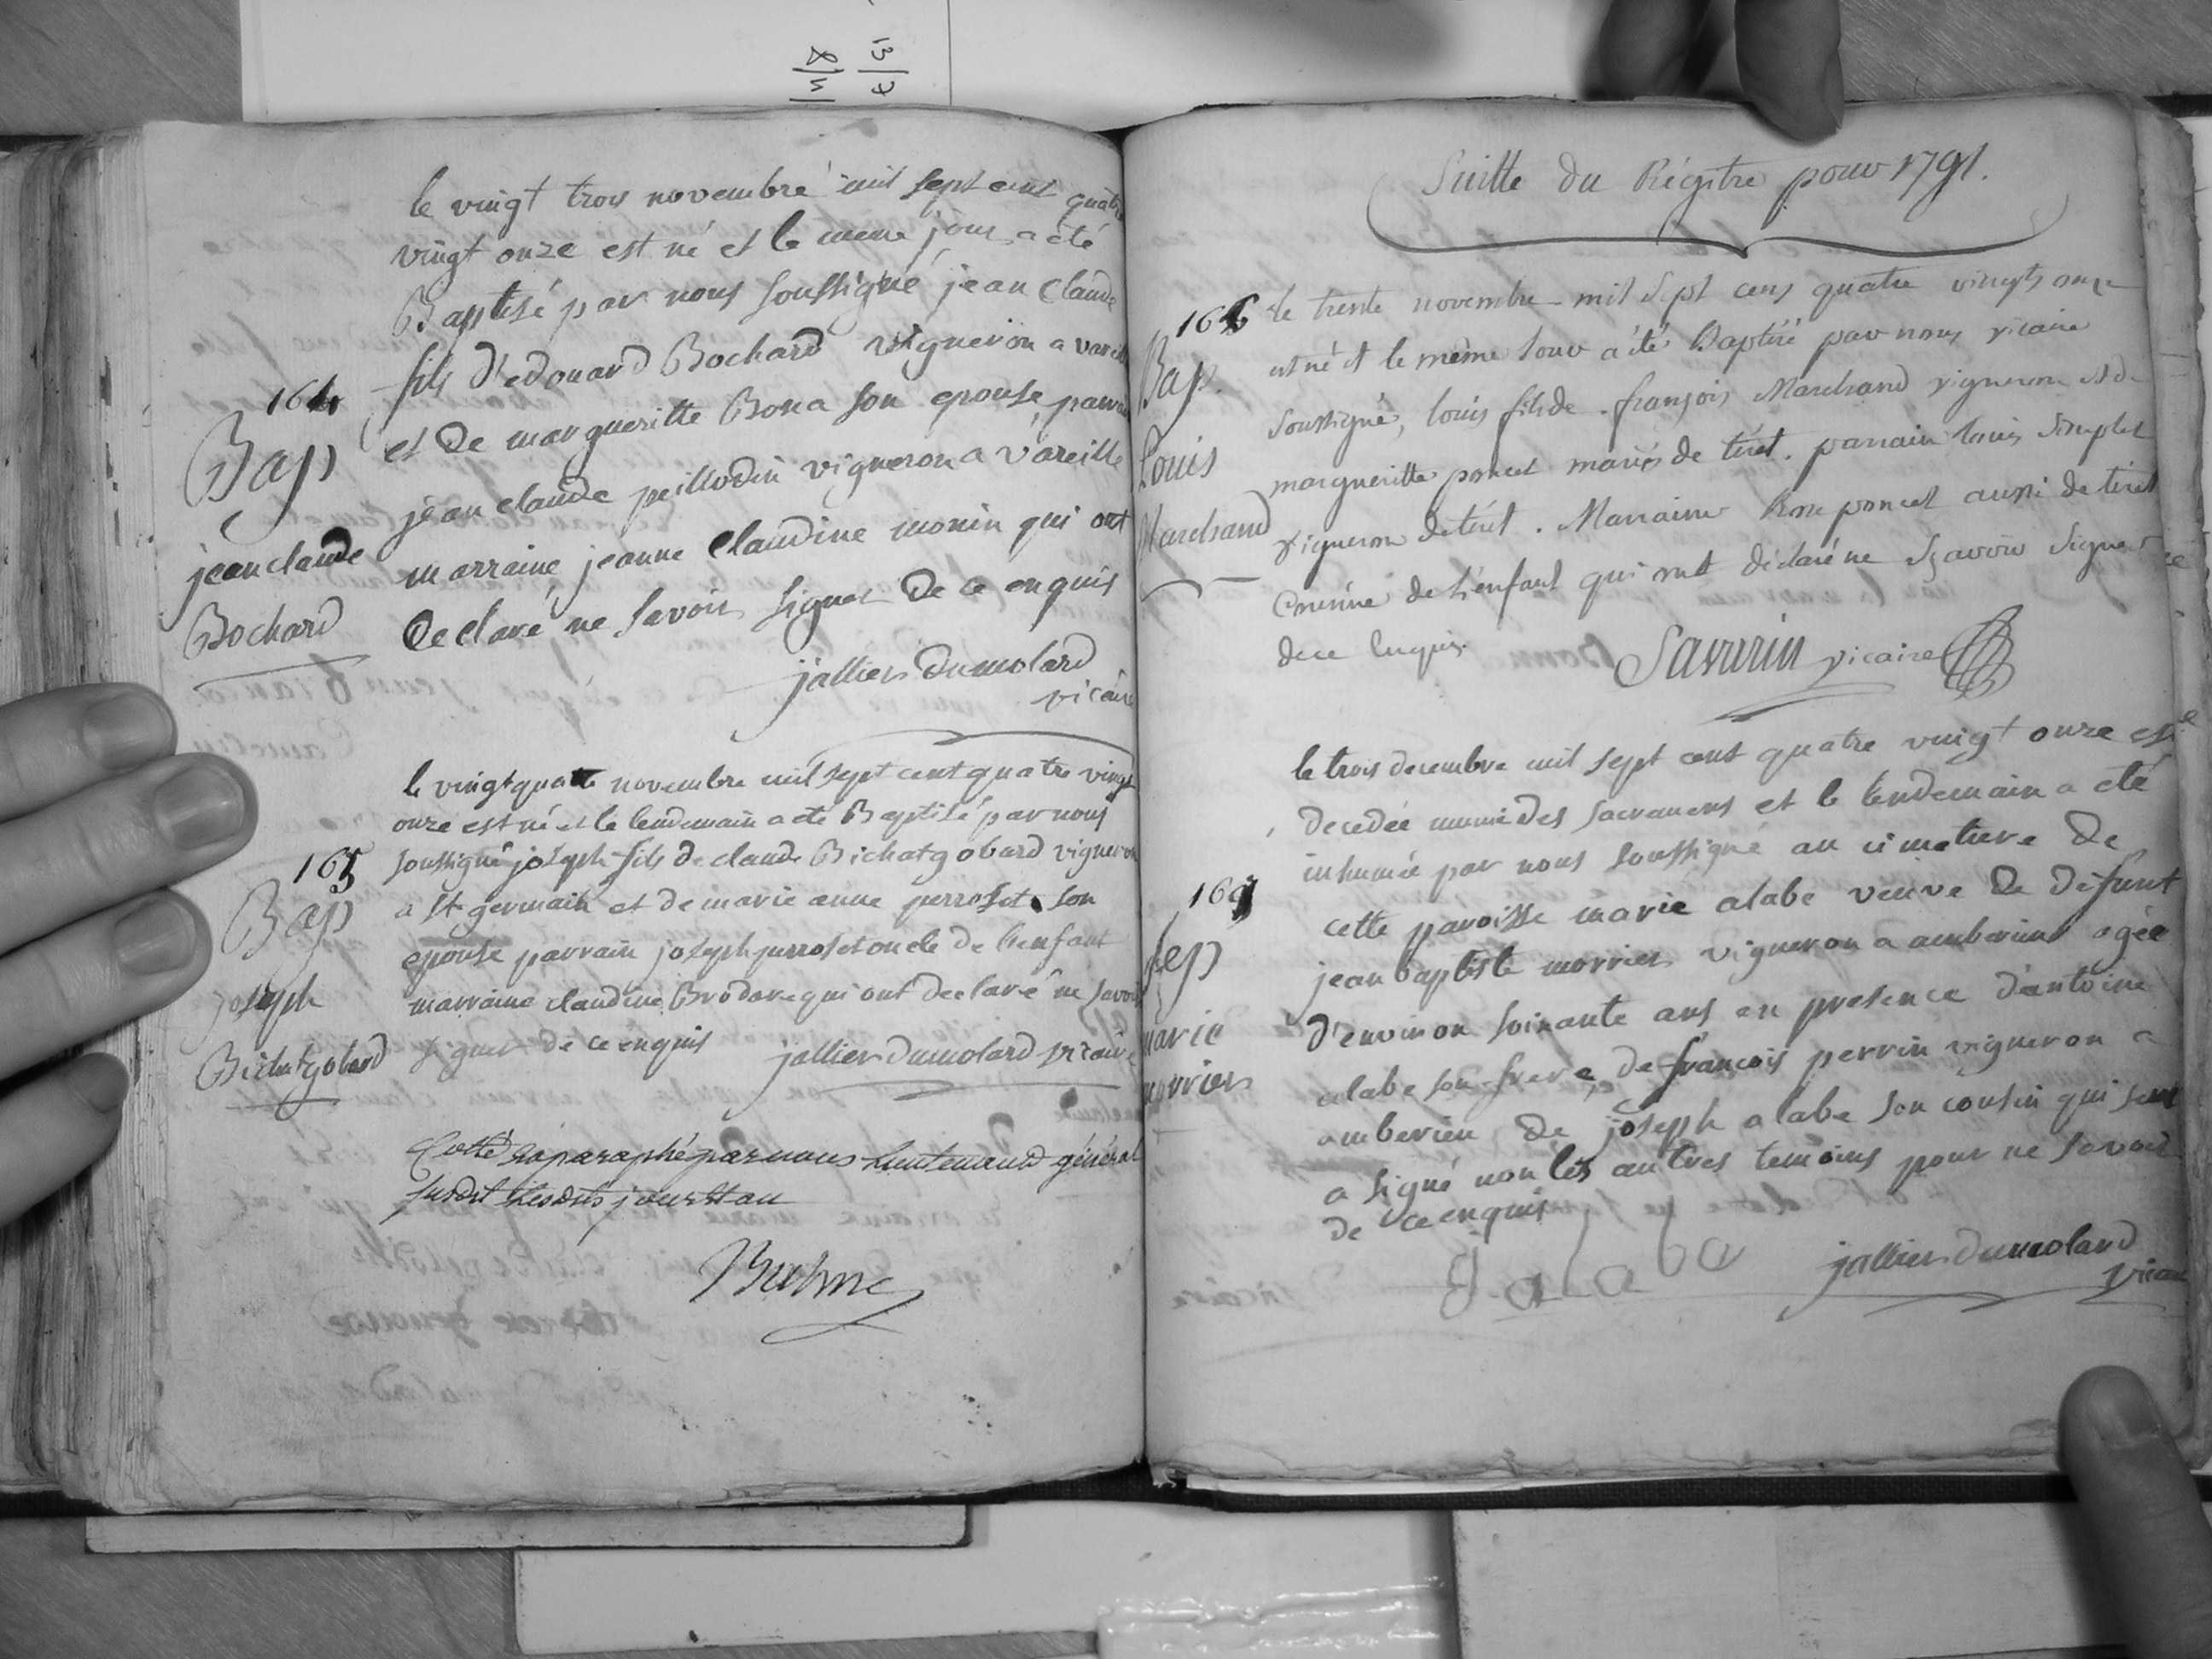 13/7
8/11
le vingt trois novembre mil sept cent quatre
vingt onze est né et le meme jour a été
Baptisé par nous soussigné jean Claude
fils d'edouard Bochard vigneron a vareille
et de margueritte Bona son epouse, parrain
jean claude peillodin vigneron a vareille
marraine, jeanne Claudine monin qui ont
declaré ne savoir signer de ce enquis
jallier dumolard
vicaire
164
Bap
jean claude
Bochard
le vingt quatre novembre mil sept cent quatre vingt
onze est né et le lendemain a eté Baptisé par nous
soussigné joseph fils de claude Bichat gobard vigneron
a st germain et de marie anne perroset son
epouse parrain joseph perroset oncle de l'enfant
marraine claudine Brodare qui ont declaré ne savoir
signer de ce enquis jallier dumolard vicaire
165
Bap
joseph
Bichat gobard
Cotté & paraphé par nous Lieutenant général
susdit lesdits jour & an
Suitte du Régitre pour 1791.
166
Bap.
Louis
Marchand
le trente novembre mil sept cens quatre vingts onze
est né et le même jour a été Baptisé par nous vicaire
soussigné, louis fils de françois Marchand vigneron et de
margueritte poncet mariés de tiret. parrain louis simplet
vigneron de tiret. Marraine Rose poncet aussi de tiret
Cousine de l'enfant qui ont déclaré ne sçavoir signer
de ce Enquis. Savarin vicaire
le trois decembre mil sept cent quatre vingt onze est
decedée munie des sacremens et le lendemain a eté
inhumée par nous soussigné au cimetiere de
cette paroisse marie alabe veuve de défunt
jean baptiste morrier vigneron a amberieu agée
d'environ soixante ans en presence d'antoine
alabe son frere, de francois perrin vigneron a
amberieu, de joseph alabe son cousin qui seul
a signé non les autres temoins pour ne savoir
de ce enquis
J. alabe jallier dumolard
vicaire
Sep
marie
morrier